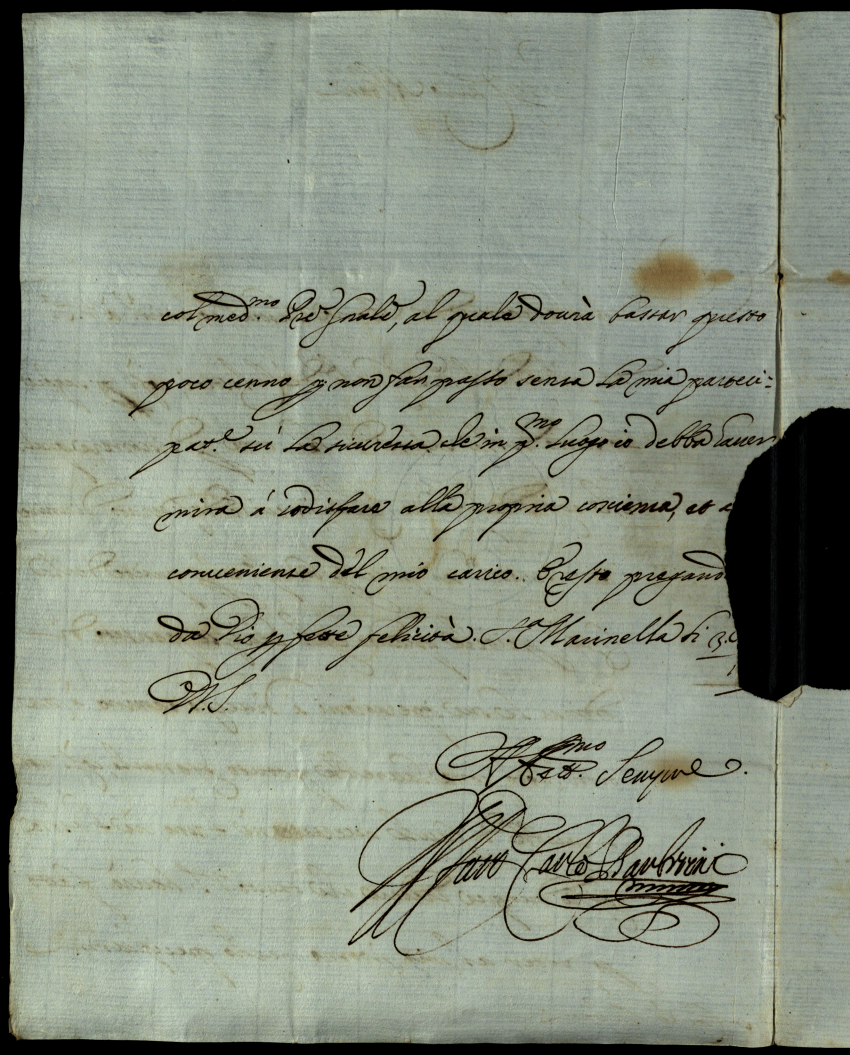 col med.mo Pre. Gnale, al quale dourà bastar questo
poco cenno p non far passo senza la mia parteci=
pat.e sù la sicurezza che in p.mo luogo io debba hauer
mira á sodisfare alla propria coscienza, et a
conueniense del mio carico. E resto pregand
da Dio pfette felicità. S.a Marinella li
V.S.
Aff.mo Sempre
Carlo Barberini